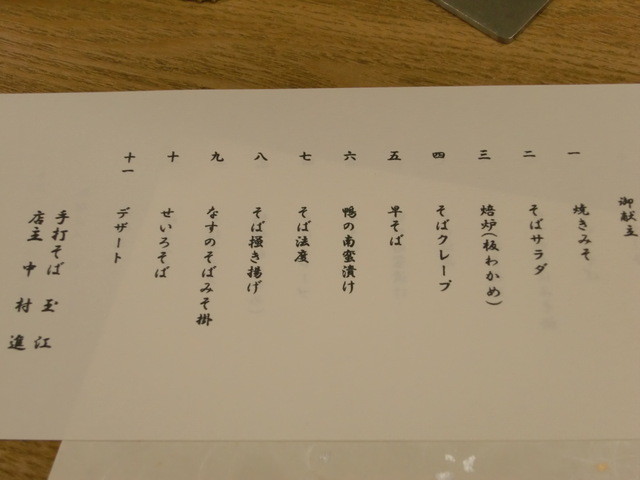 御献主
一 焼きみそ
二 そばサラダ
三 焙炉(板わかめ)
四 そばクレープ
五 早そば
六 鴨の南蛮漬け
七 そば法度
八 そば掻き揚げ
九 なすのそばみそ掛
十 せいろそば
十一 デザート
手打そば 玉江
店主 中村進